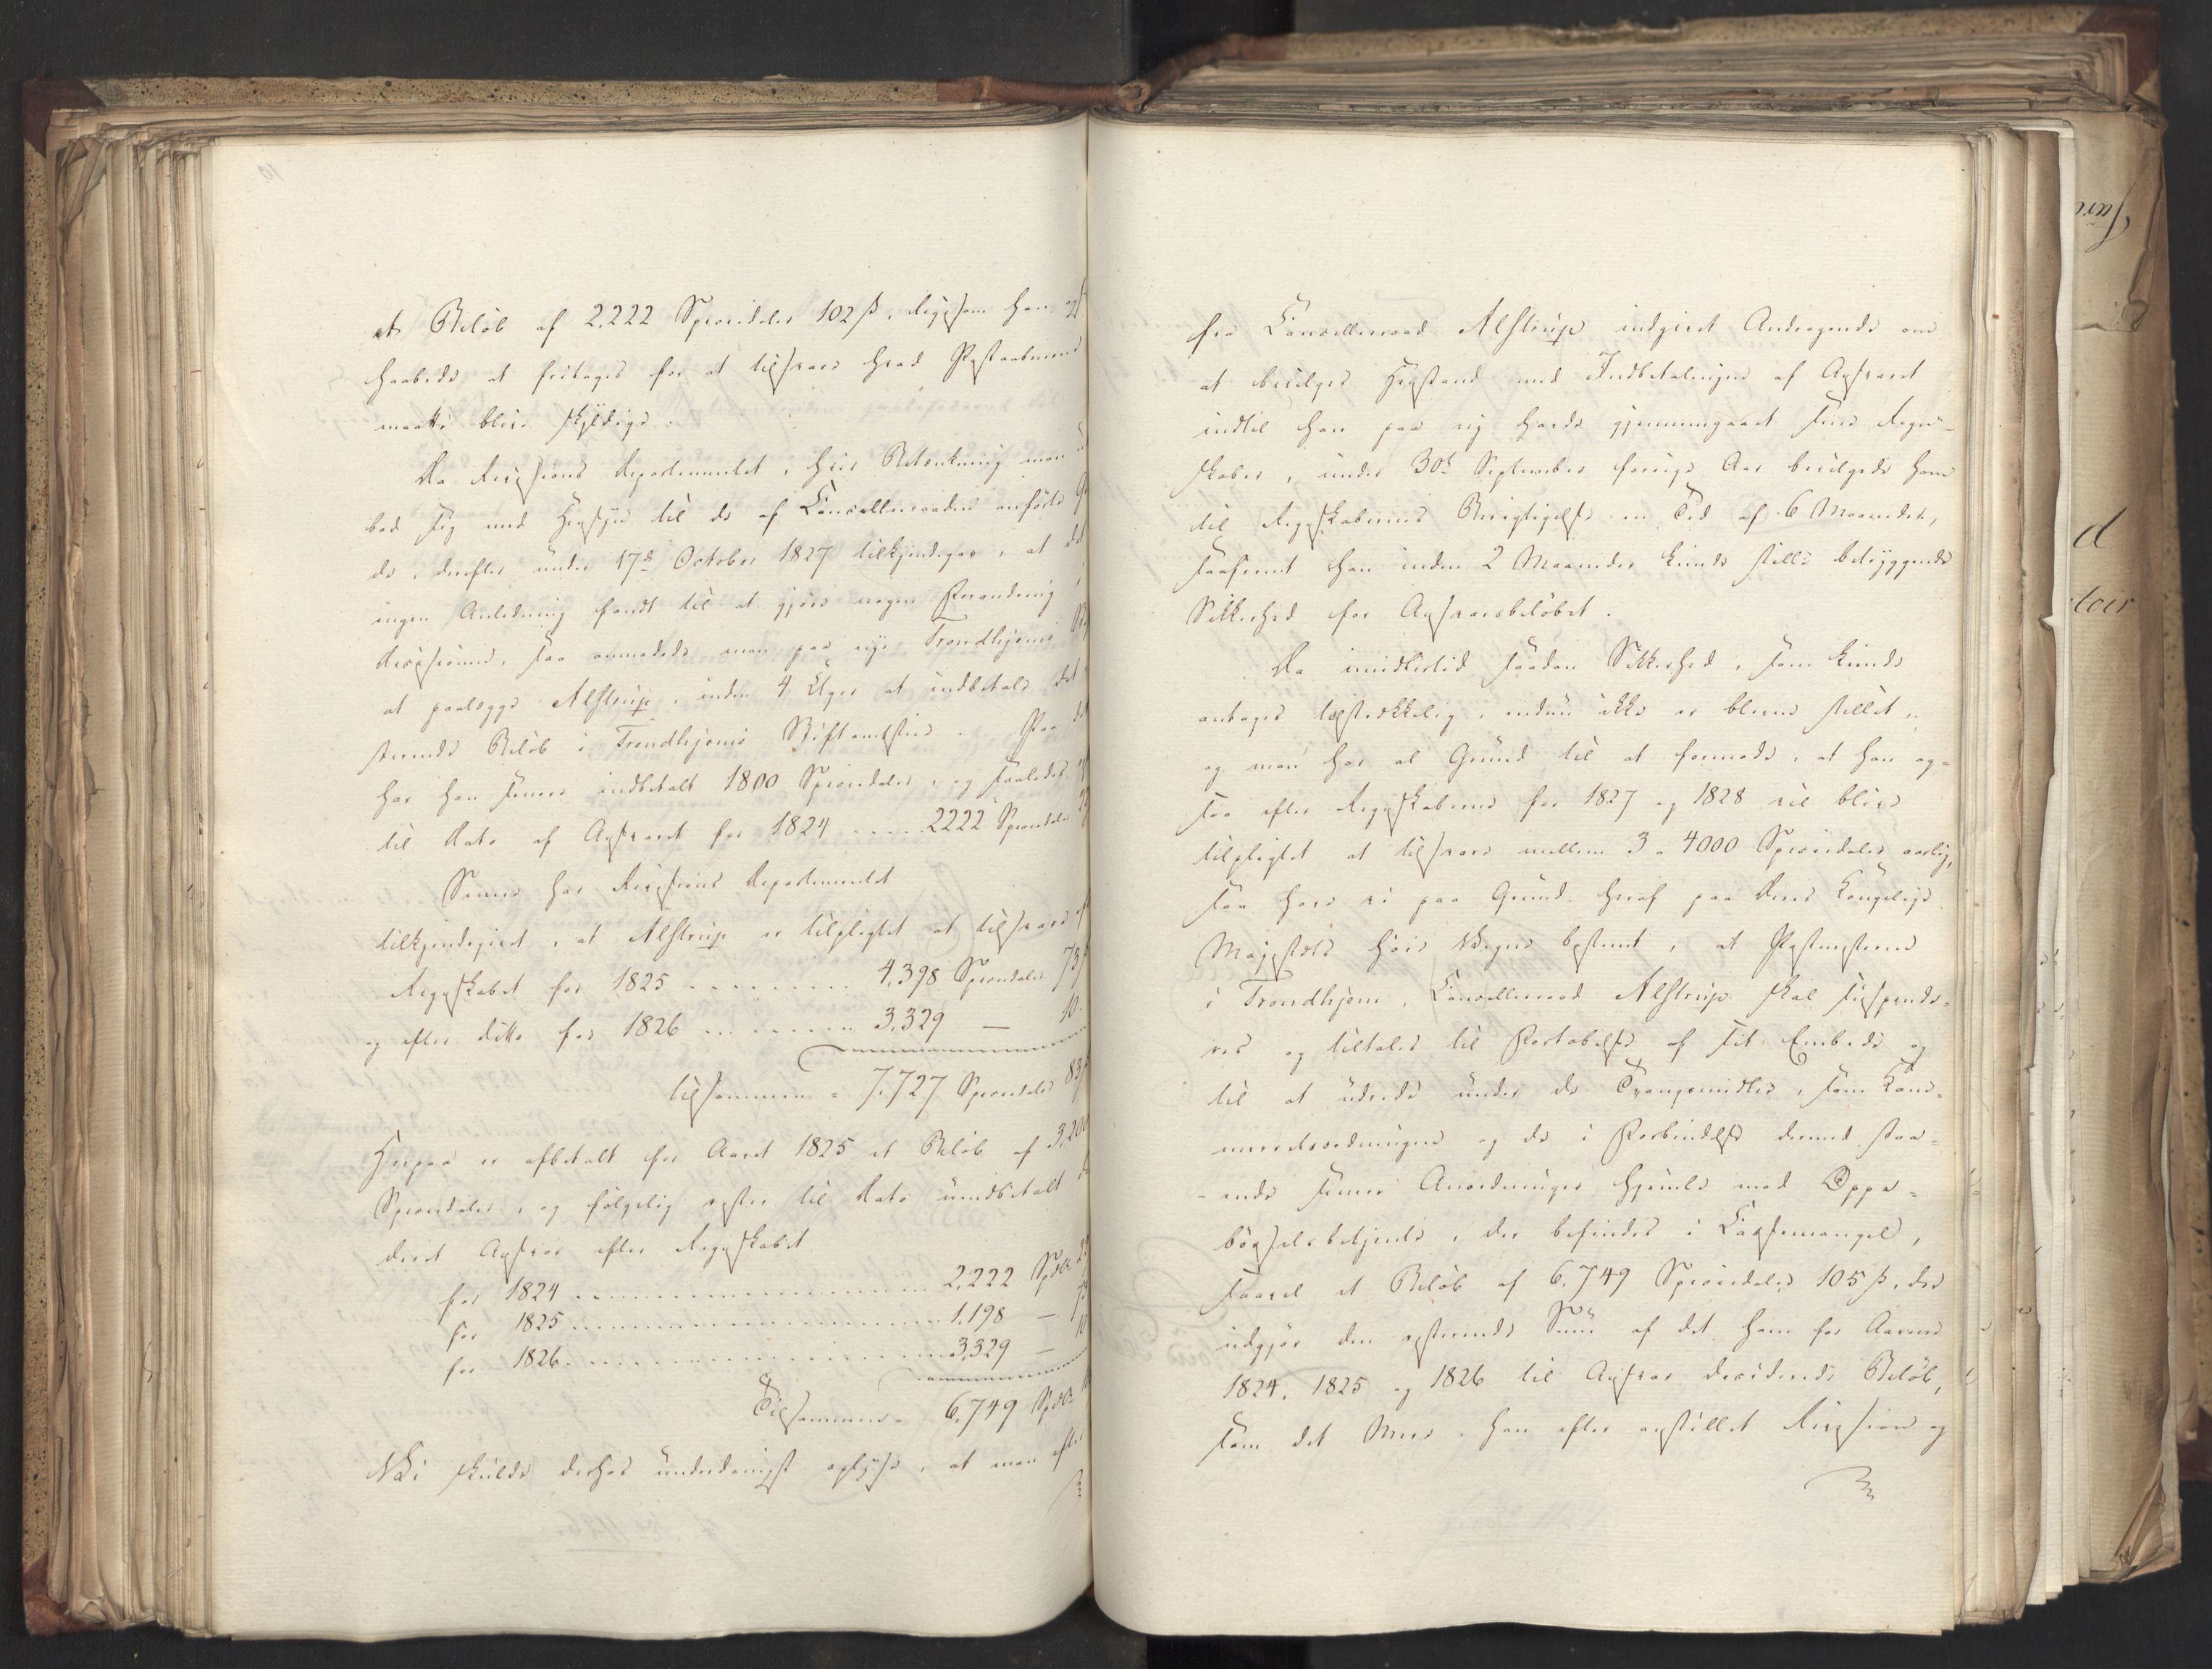 et Beløb af 2,222 Speciedaler 102 ß, ligesom han og
haabede at fritages for at tilsvare hvad Postaabnerne
maatte blive skyldige.
Da Revisions Departementet, hvis Betænkning man
bad sig med Hensyn til de af Cancelleraaden anførte
de, derefter under 17de October 1827 tilkjendegav, at det
ingen Anledning fandt til at gjøre nogen Forandring i
Decisionerne, saa anmodede man paa nye Trondhjems
at paalægge Alstrup, inden 4 Uger at indbetale det
sterende Beløb i Trondhjems Stiftamtstue. Paa
har han siden indbetalt 1800 Speciedaler, og saaledes
til Rest af Ansvaret for 1824 ..... 2222 Speciedaler
Senere har Revisions Departementet
tilkjendegivet, at Alstrup er tilpligtet at tilsvare
Regnskabet for 1825 ......... 4,398 Speciedaler 73
og efter ditto for 1826 ......... 3,329 — 10
tilsammen = 7,727 Speciedaler 83
Herpaa er afbetalt for Aaret 1825 et Beløb af 3,200
Speciedaler, og følgelig rester til Rest uindbetalt
deret Ansvar efter Regnskabet
for 1824 .................. 2,222 Spdlr
for 1825 .................. 1,198 — 73
for 1826 .................. 3,329 — 10
Tilsammen = 6,749 Spdlr
Vi skulde derhos underdanigst oplyse, at man efter
fra Cancelleraad Alstrup indgivet Andragende om
at bevilges Henstand med Indbetalingen af Ansvaret
indtil han paa ny havde gjennemgaaet sine Regn-
skaber, under 30te September forrige Aar bevilgede ham
til Regnskabernes Berigtigelse en Tid af 6 Maaneder,
saafremt han inden 2 Maaneder kunde stille betryggende
Sikkerhed for Ansvarsbeløbet.
Da imidlertid saadan Sikkerhed, som kunde
antages tilstrækkelig, endnu ikke er bleven stillet,
og man har al Grund til at formode, at han og-
saa efter Regnskaberne for 1827 og 1828 vil blive
tilpligtet at tilsvare mellem 3 a 4000 Speciedaler aarlig,
saa have vi paa Grund heraf paa Deres Kongelige
Majestæts høie Vegne bestemt, at Postmesteren
i Trondhjem, Cancelleraad Alstrup skal suspende-
res og tiltales til Fortabelse af sit Embede og
til at udrede under de Tvangsmidler, som Cam-
merretsordningen og de i Forbindelse dermed staa-
ende senere Anordninger hjemle mod Oppe-
børselsbetjente, der befindes i Cassemangel,
saavel et Beløb af 6,749 Speciedaler 105 ß, der
udgjør den resterende Sum af det ham for Aarene
1824, 1825 og 1826 til Ansvar deciderede Beløb,
som det Mere, han efter anstillet Revision og